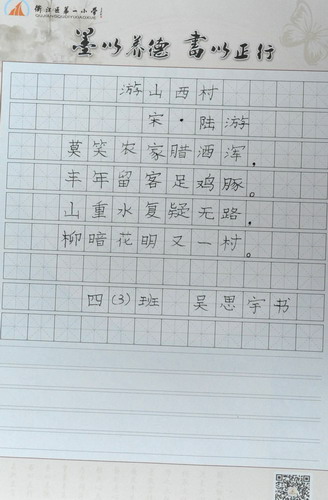 衢江区第一小学
QUJIANGQUDIYIXIAOXUE
墨以养德 书以正行
游山西村
宋·陆游
莫笑农家腊酒浑，
丰年留客足鸡豚。
山重水复疑无路，
柳暗花明又一村。
四(3)班 吴思宇书